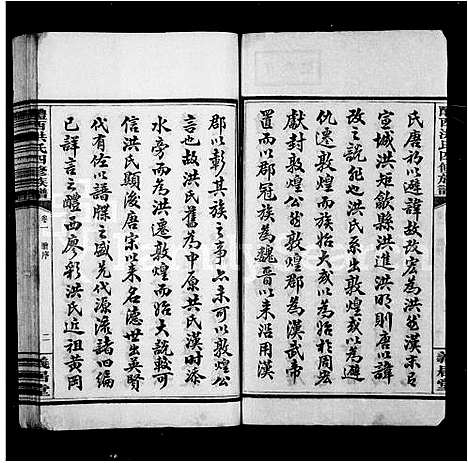 醴西洪氏四修族譜
氏唐初以避諱故改宏為洪然漢末已
宣城洪矩歙縣洪進洪明則唐以諱
改之說也洪氏系出敦煌或以為避
仇遷敦煌而族始大或以為始於周宏
獻封敦煌公然敦煌郡為漢武帝
置而以郡冠族為魏晉以来沿用漢
義居堂
郡以彰其族之事亦未可以敦煌公
言也故洪氏舊為中原共氏漢時添
水旁而為洪遷敦煌而始大說較可
信洪氏顯後唐宋以来名德世出吳賢
代有佐以譜牒之盛先代源流諸四編
已詳言之醴西廖彩洪氏近祖黄岡
醴西洪氏四修族譜
卷一
序
二
義居堂